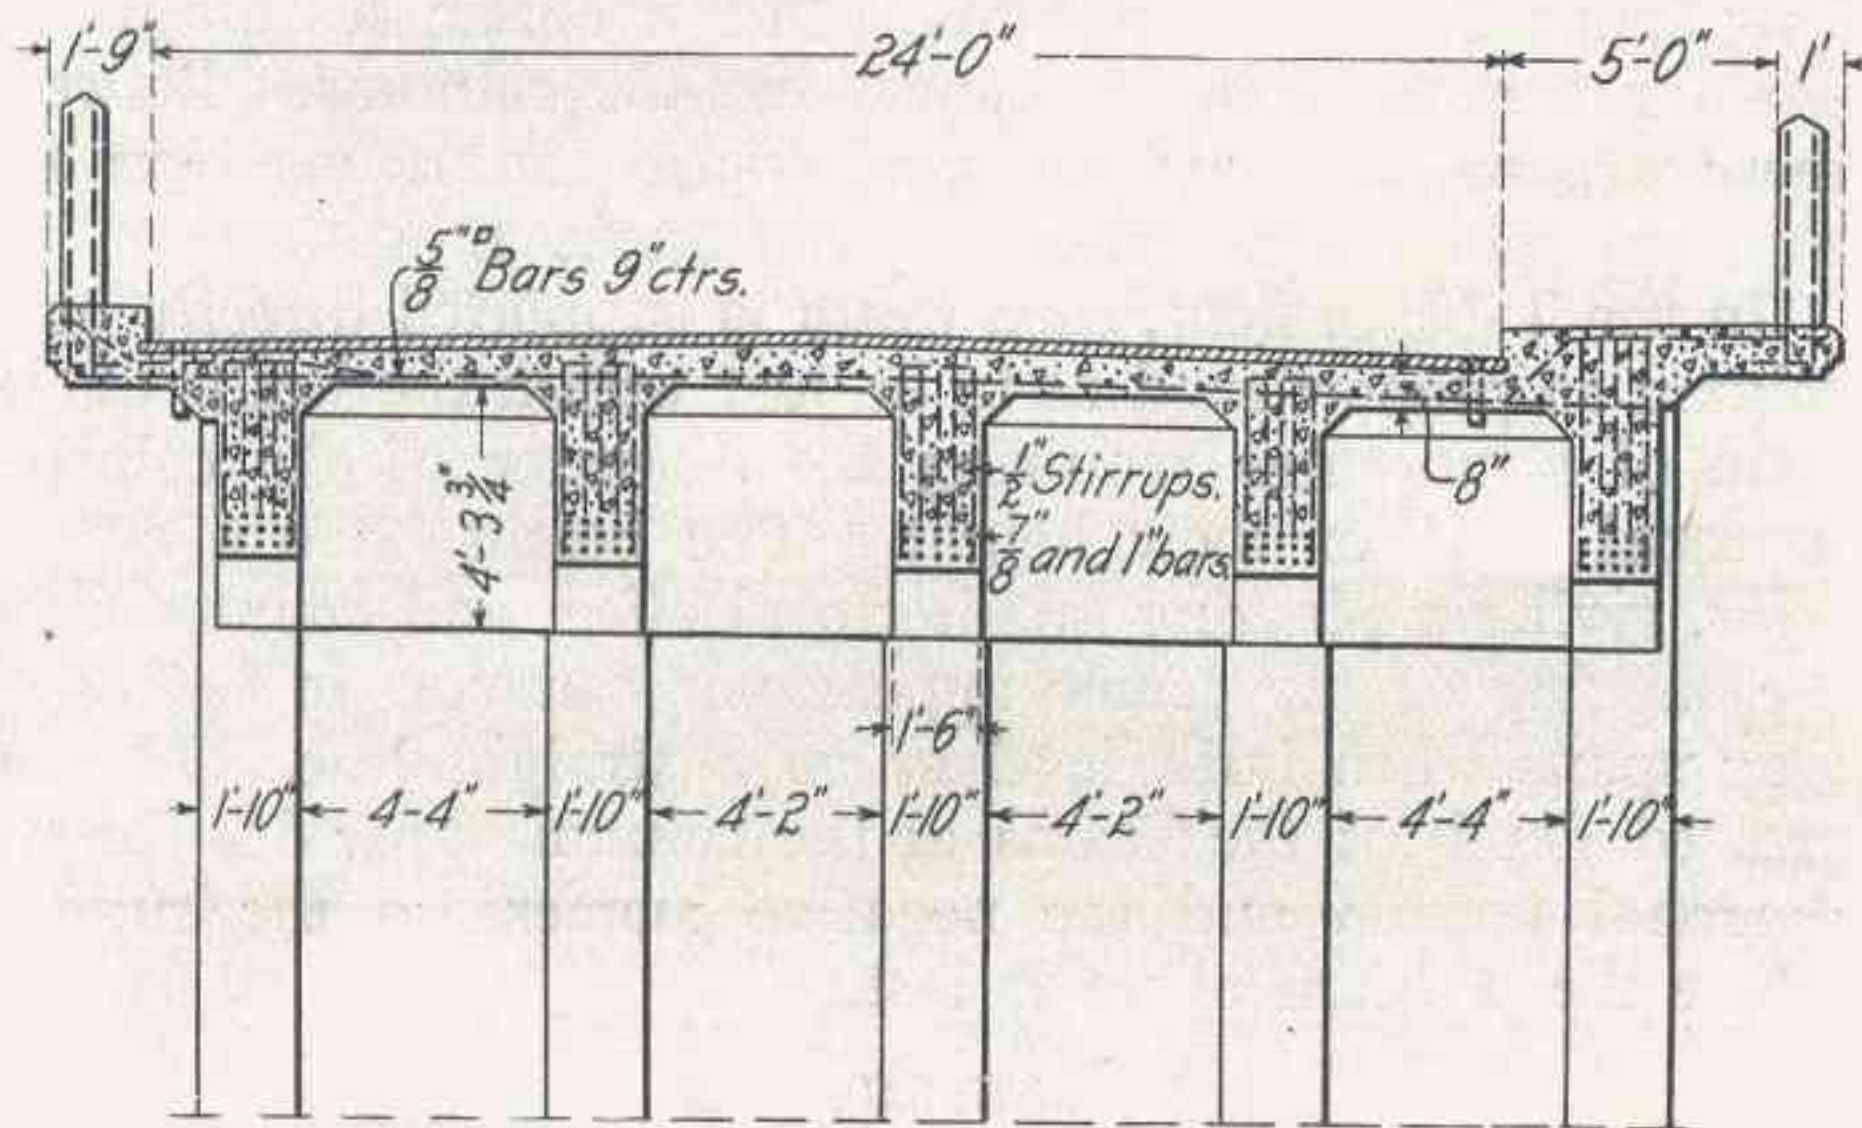 1'-9" 24'-0" 5'-0" 1'
5/8"□ Bars 9" ctrs.
4'-3 3/4"
1/2" Stirrups.
7/8" and 1" bars.
8"
1'-6"
1'-10" 4'-4" 1'-10" 4'-2" 1'-10" 4'-2" 1'-10" 4'-4" 1'-10"